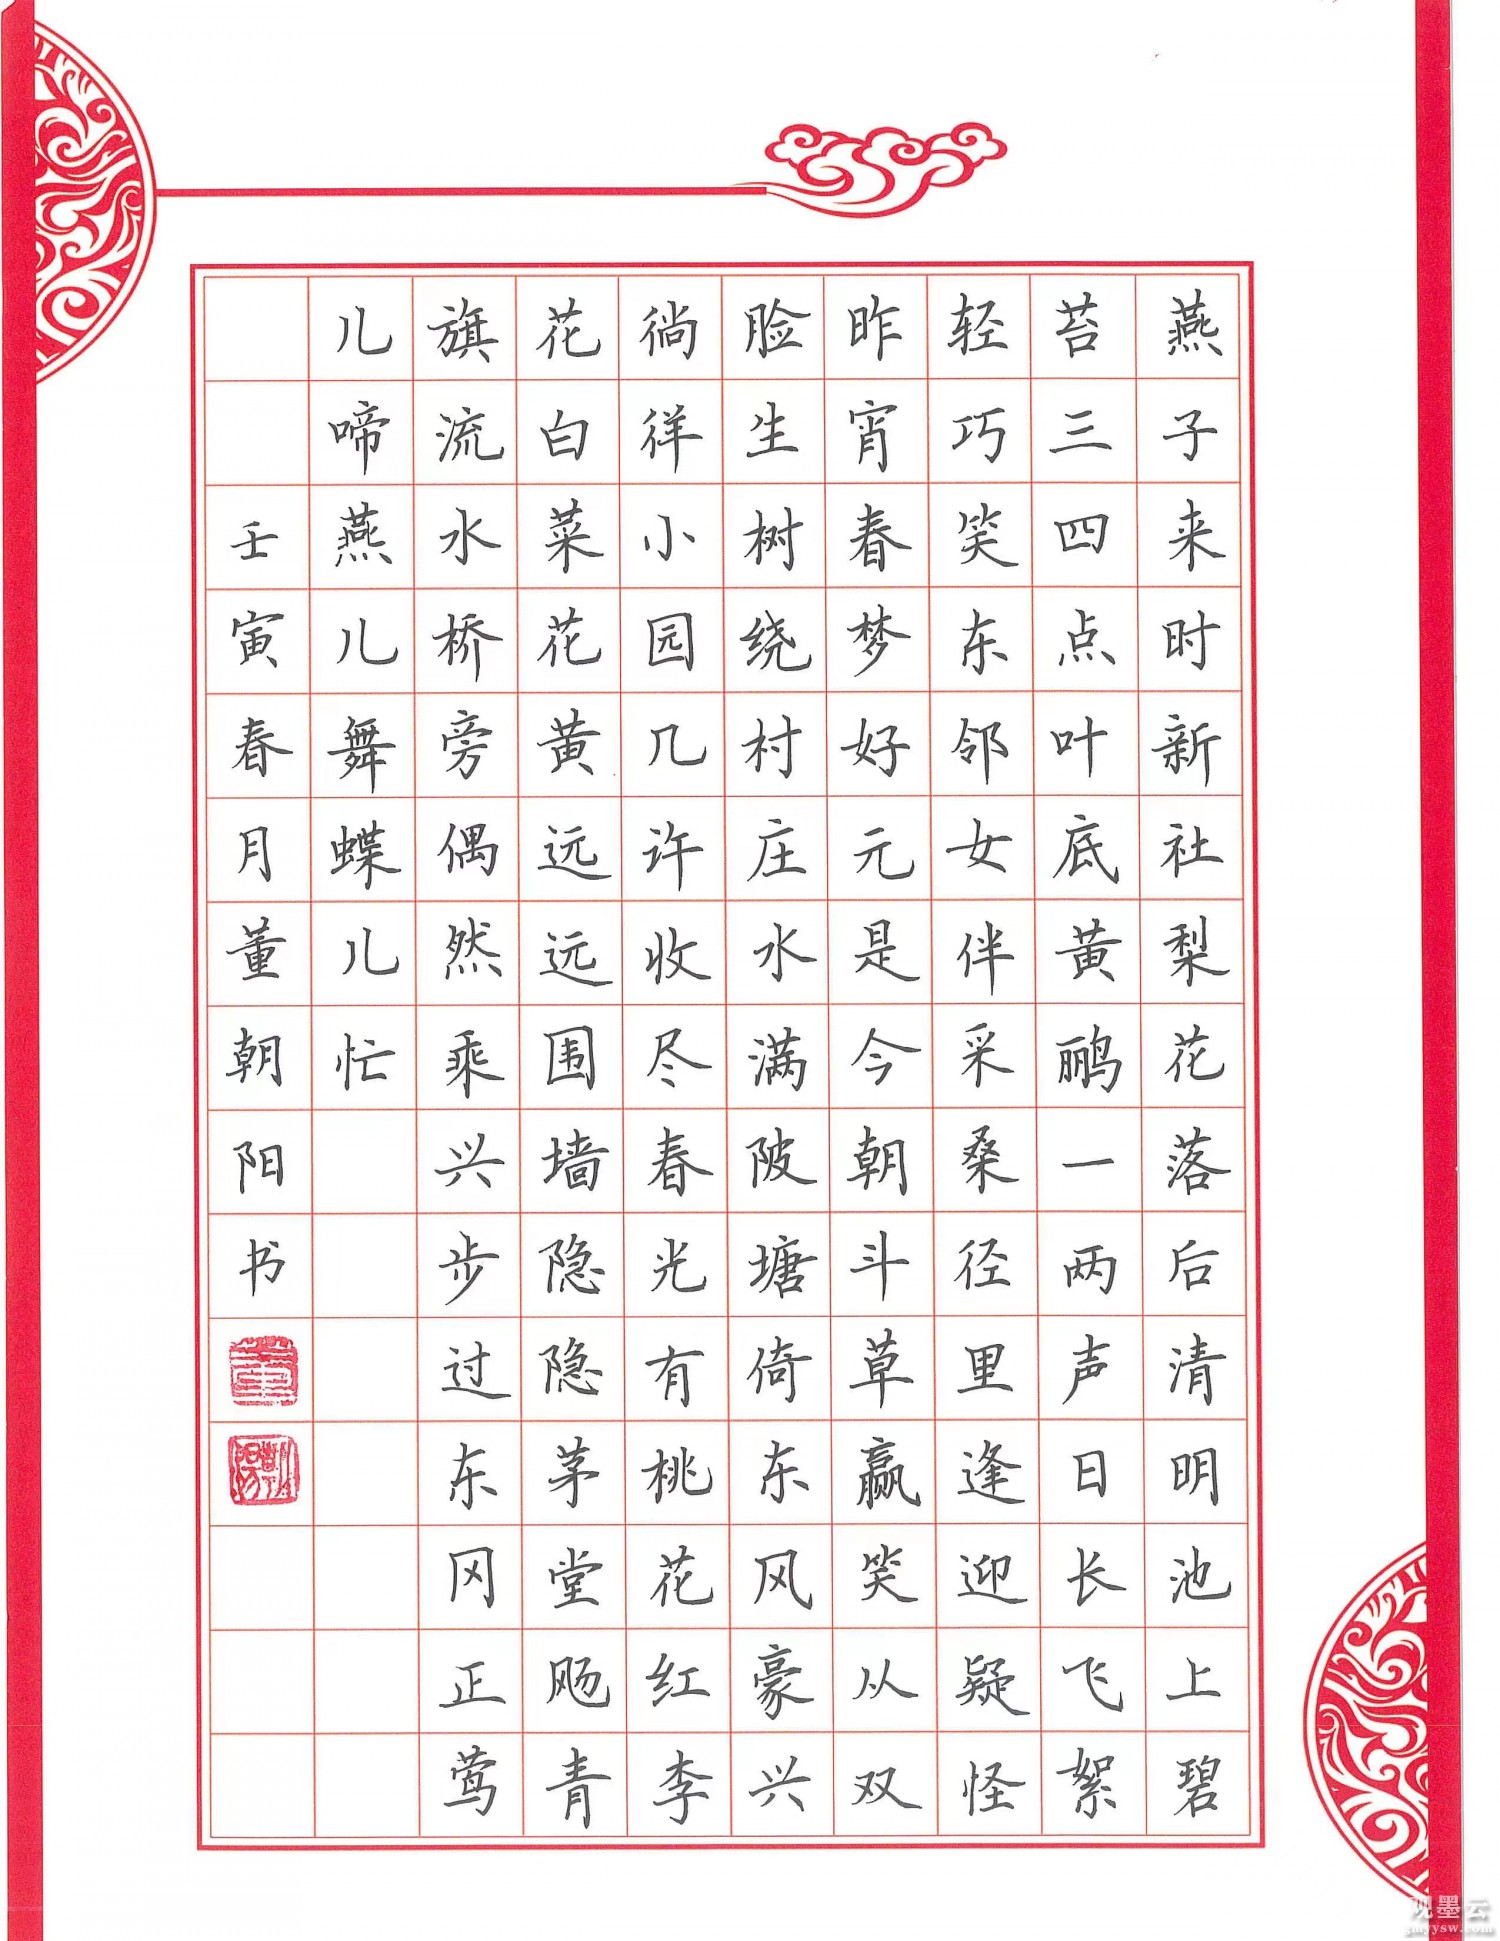 燕子来时新社梨花落后清明池上碧
苔三四点叶底黄鹂一两声日长飞絮
轻巧笑东邻女伴采桑径里逢迎疑怪
昨宵春梦好元是今朝斗草赢笑从双
脸生树绕村庄水满陂塘倚东风豪兴
徜徉小园几许收尽春光有桃花红李
花白菜花黄远远围墙隐隐茅堂飏青
旗流水桥旁偶然乘兴步过东冈正莺
儿啼燕儿舞蝶儿忙
壬寅春月董朝阳书
观墨云
gmyysw.com